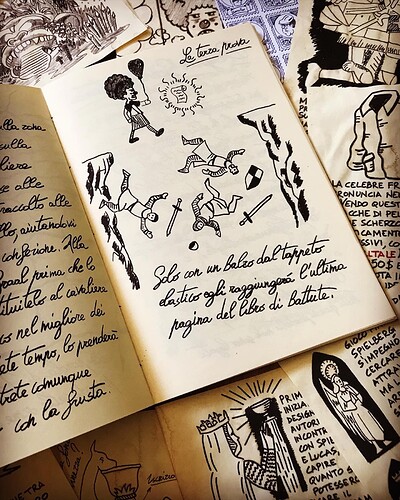 La terza prova
Solo con un balzo dal tappeto
elastico egli raggiungerà l'ultima
pagina del libro di battute.
ulla zona
sulla
se alle
raccolto alle
llo, aiutandovi
confezione. Alla
Graal prima che lo
tituitelo al cavaliere
co nel migliore dei
ete tempo, lo prenderà
trete comunque
con la frusta.
LA CELEBRE FR
PRONUNCIA NEL
VENDO QUEST
CHE DI PEL
E SCHERZO
CAMENTO
SSIVI, CO
50$
GIOCO
SPIELBERG
S'IMPEGNÒ
CERCAR
ATTR
MA
PRIM
INIZIA
DESIGN
AUTORI
INCONTA
CON SPIE
E LUCAS,
CAPIRE
QUANTO S
POTESSERO